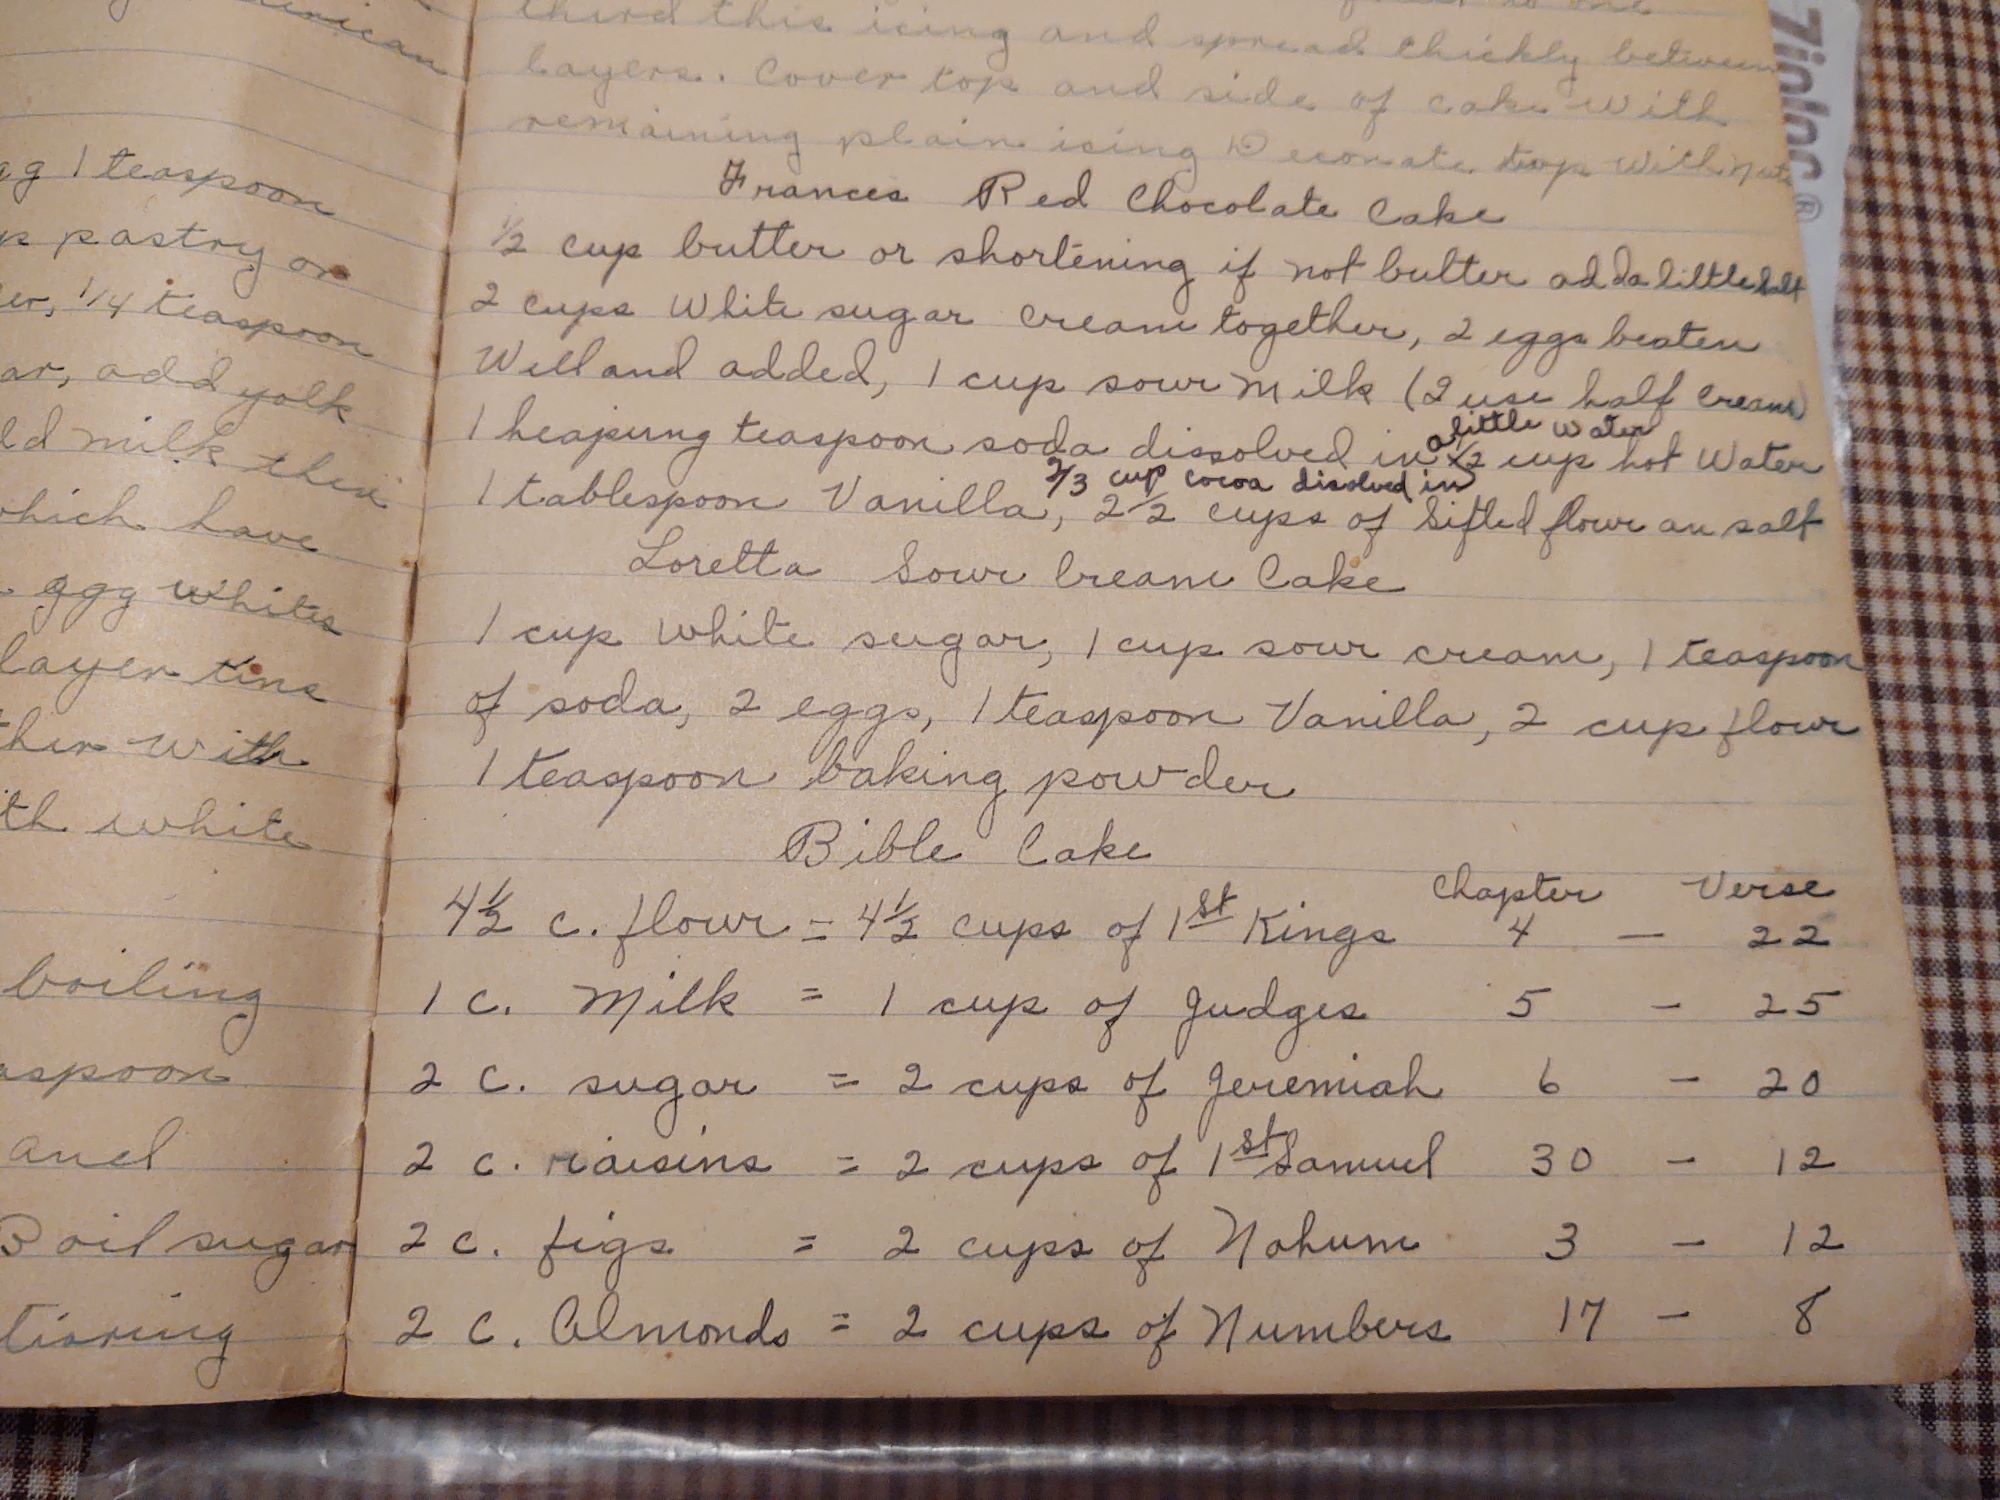 ag 1 teaspoon
pastry or
er, 1/4 teaspoon
ar, add yolk
ld milk then
which have
egg whites
layer tins
ther with
th white
boiling
aspoon
and
Boil sugar
third this icing and spread thickly between
layers. Cover top and side of cake with
remaining plain icing Decorate top with nuts
Frances Red Chocolate Cake
1/2 cup butter or shortening if not butter add a little salt
2 cups White sugar cream together, 2 eggs beaten
Well and added, 1 cup sour milk (I use half cream)
a little water
1 heaping teaspoon soda dissolved in 1/2 cup hot Water
2/3 cup cocoa disolved in
1 tablespoon Vanilla, 2 1/2 cups of Sifted flour an salt
Loretta Sour Cream Cake
1 cup White sugar, 1 cup sour cream, 1 teaspoon
of soda, 2 eggs, 1 teaspoon Vanilla, 2 cup flour
1 teaspoon baking powder
Bible Cake
Chapter - Verse
4 1/2 c. flour = 4 1/2 cups of 1st Kings 4 - 22
1 c. Milk = 1 cup of Judges 5 - 25
2 c. sugar = 2 cups of Jeremiah 6 - 20
2 c. raisins = 2 cups of 1st Samuel 30 - 12
2 c. figs = 2 cups of Nahum 3 - 12
2 c. Almonds = 2 cups of Numbers 17 - 8
Ziploc®